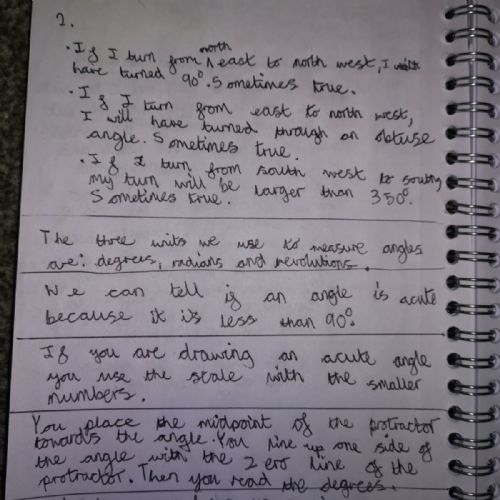 2.
• If I turn from north east to north west, I
have turned 90°. Sometimes true.
• If I turn from east to north west,
I will have turned through an obtuse
angle. Sometimes true.
• If I turn from south west to south,
my turn will be larger than 350°.
Sometimes true.
The three units we use to measure angles
are: degrees, radians and revolutions.
We can tell if an angle is acute
because it is less than 90°.
If you are drawing an acute angle
you use the scale with the smaller
numbers.
You place the midpoint of the protractor
towards the angle. You line up one side of
the angle with the zero line of the
protractor. Then you read the degrees.